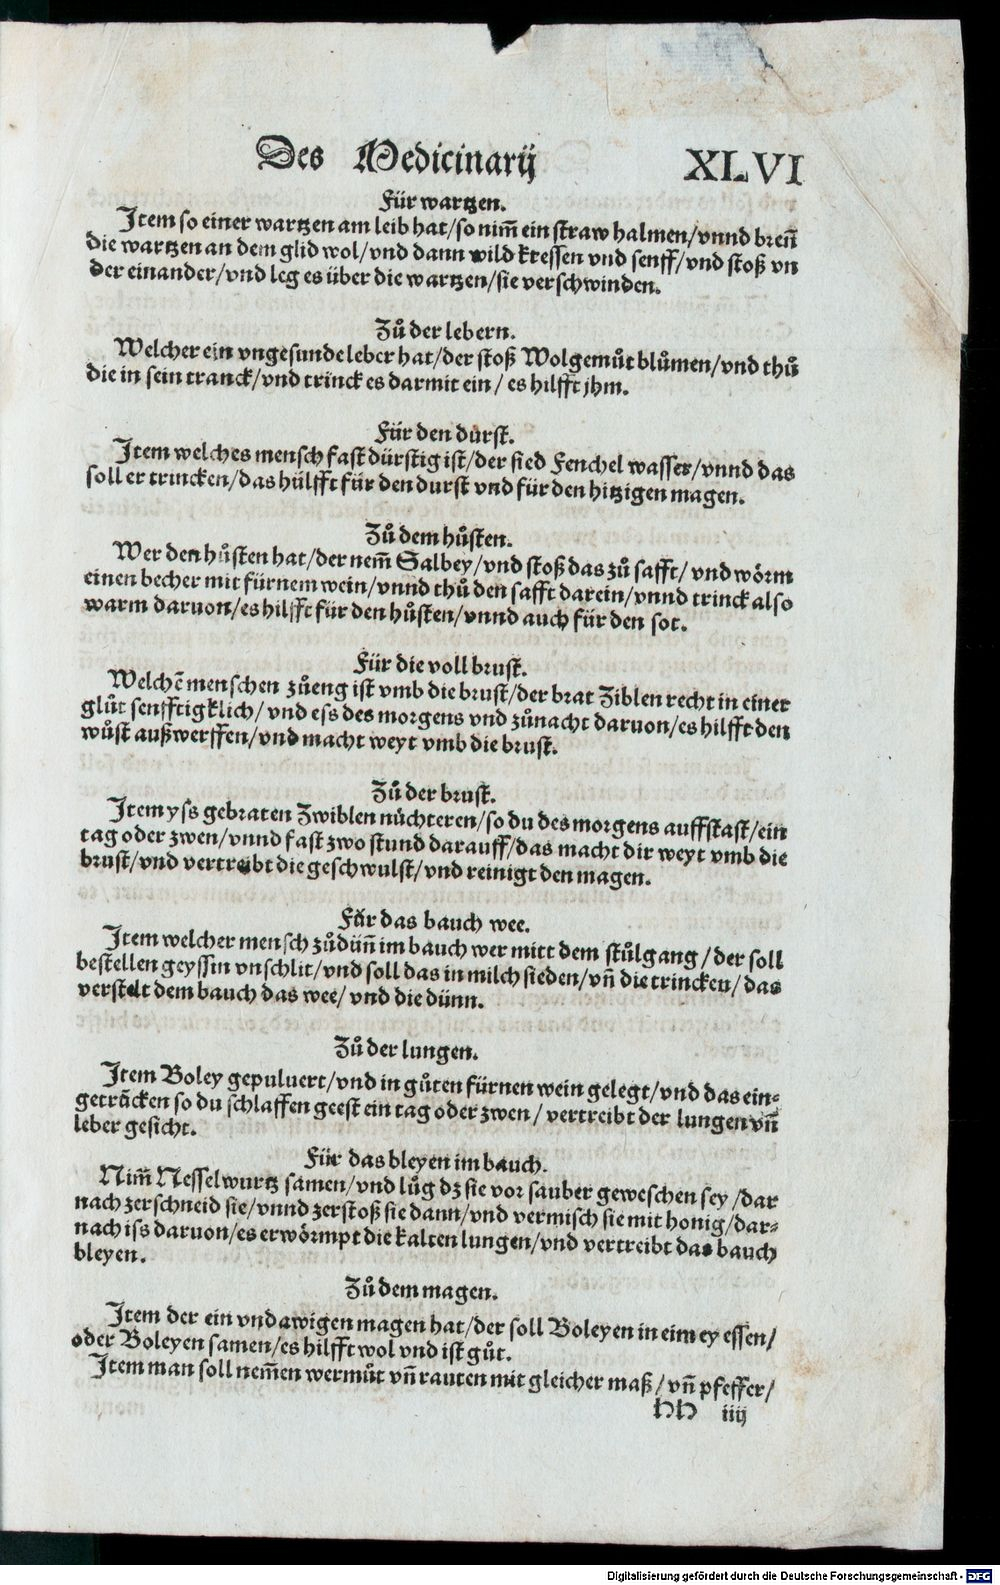 Des Medicinarij XLVI
Für wartzen.
Item so einer wartzen am leib hat/so nim̃ ein straw halmen/vnnd breñ
die wartzen an dem glid wol/vnd dann wild kressen vnd senff/vnd stoß vn
der einander/vnd leg es über die wartzen/sie verschwinden.
Zů der lebern.
Welcher ein vngesunde leber hat/der stoß Wolgemůt blůmen/vnd thů
die in sein tranck/vnd trinck es darmit ein/ es hilfft jhm.
Für den durst.
Item welches mensch fast dürstig ist/der sied Fenchel wasser/vnnd das
soll er trincken/das hülfft für den durst vnd für den hitzigen magen.
Zů dem hůsten.
Wer den hůsten hat/der nem̃ Salbey/vnd stoß das zů safft/ vnd wörm
einen becher mit fürnem wein/vnnd thů den safft darein/vnnd trinck also
warm daruon/es hilfft für den hůsten/vnnd auch für den sot.
Für die voll brust.
Welchẽ menschen zů eng ist vmb die brust/der brat Ziblen recht in einer
glůt senfftigklich/ vnd ess des morgens vnd zůnacht daruon/es hilfft den
wůst außwerffen/vnd macht weyt vmb die brust.
Zů der brust.
Item yss gebraten Zwiblen nüchteren/so du des morgens auffstast/ein
tag oder zwen/vnnd fast zwo stund darauff/das macht dir weyt vmb die
brust/vnd vertreibt die geschwulst/vnd reinigt den magen.
Für das bauch wee.
Item welcher mensch zů düñ im bauch wer mitt dem stůlgang/der soll
bestellen geyssin vnschlit/vnd soll das in milch sieden/vñ die trincken/das
verstelt dem bauch das wee/ vnd die dünn.
Zů der lungen.
Item Boley gepuluert/vnd in gůten fürnen wein gelegt/vnd das ein⸗
getrãcken so du schlaffen geest ein tag oder zwen/ vertreibt der lungen vñ
leber gesicht.
Für das bleyen im bauch.
Nim̃ Nesselwurtz samen/vnd lůg dz sie vor sauber geweschen sey/dar
nach zerschneid sie/vnnd zerstoß sie dann/vnd vermisch sie mit honig/dar⸗
nach iss daruon/es erwörmpt die kalten lungen/vnd vertreibt das bauch
bleyen.
Zů dem magen.
Item der ein vndawigen magen hat/der soll Boleyen in eim ey essen/
oder Boleyen samen/es hilfft wol vnd ist gůt.
Item man soll nem̃en wermůt vñ rauten mit gleicher maß/vñ pfeffer/
hh iiij
Digitalisierung gefördert durch die Deutsche Forschungsgemeinschaft - DFG